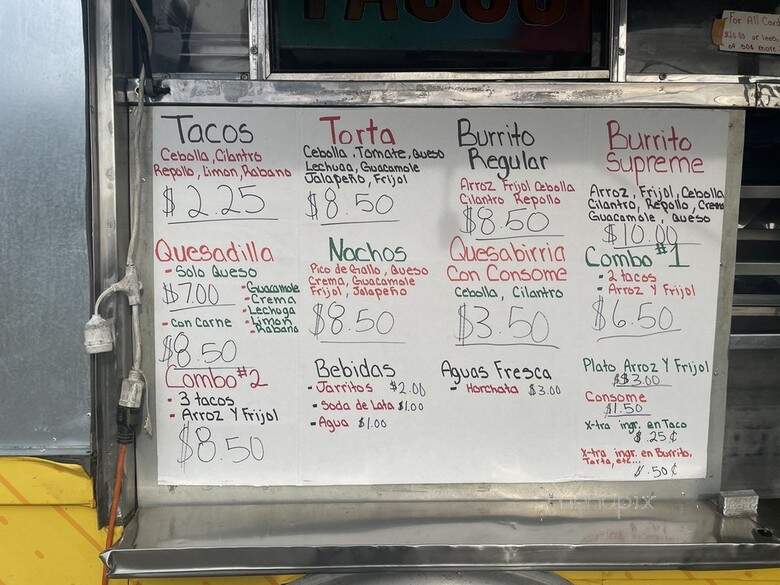 TACOS
For All Card
Tacos
Cebolla, Cilantro
Repollo, Limon, Rabano
$2.25
Torta
Cebolla, Tomate, Queso
Lechuga, Guacamole
Jalapeño, Frijol
$8.50
Burrito
Regular
Arroz Frijol Cebolla
Cilantro Repollo
$8.50
Burrito
Supreme
Arroz, Frijol, Cebolla
Cilantro, Repollo, Crema
Guacamole, Queso
$10.00
Quesadilla
- Solo Queso
$7.00
- Guacamole
- Crema
- Lechuga
- Limon
- Rabano
- Con Carne
$8.50
Nachos
Pico de Gallo, Queso
Crema, Guacamole
Frijol, Jalapeño
$8.50
Quesabirria
Con Consome
Cebolla, Cilantro
$3.50
Combo #1
- 2 tacos
- Arroz Y Frijol
$6.50
Combo #2
- 3 tacos
- Arroz Y Frijol
$8.50
Bebidas
- Jarritos $2.00
- Soda de Lata $1.00
- Agua $1.00
Aguas Fresca
- Horchata $3.00
Plato Arroz Y Frijol
$3.00
Consome
$1.50
X-tra ingr. en Taco
$.25¢
X-tra ingr. en Burrito,
Torta, etc...
.50¢
menupix